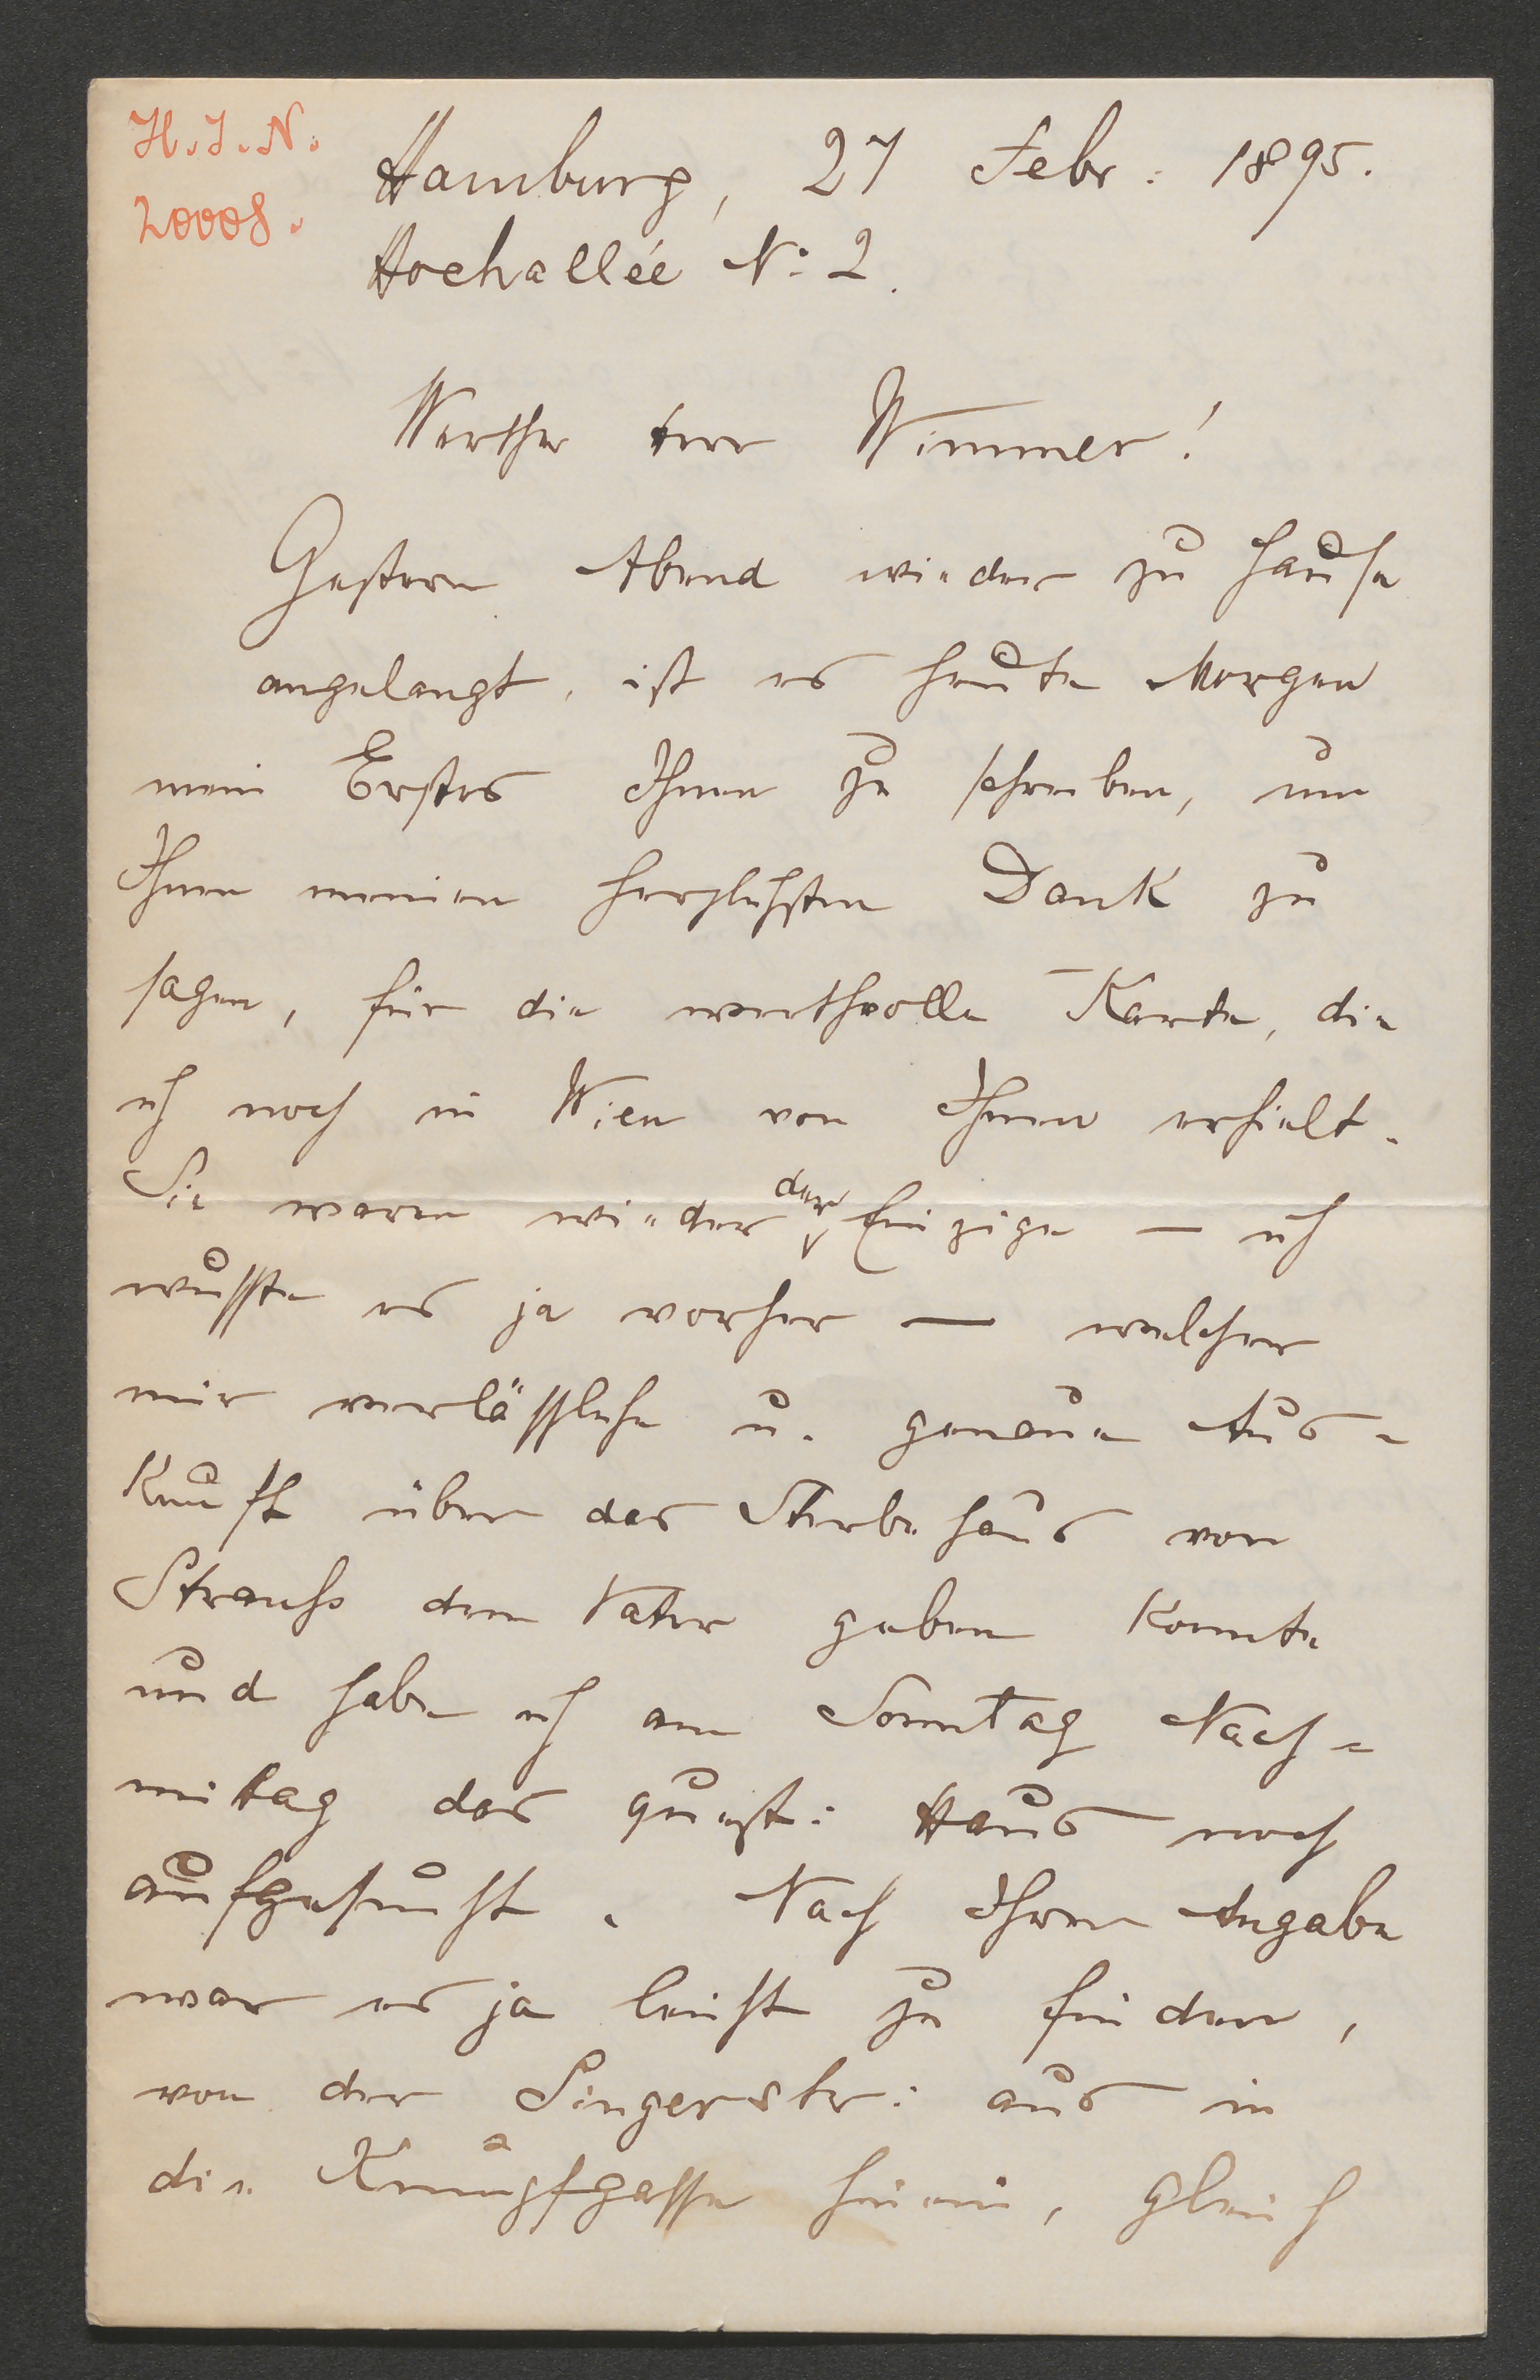 H. I. N.
20008.
Hamburg, 27 Febr: 1895.
Hochallée N: 2.
Werther Herr Wimmer!
Gestern Abend wieder zu Hause
angelangt, ist es heute Morgen
mein Erstes Ihnen zu schreiben, um
Ihnen meinen herzlichsten Dank zu
sagen, für die werthvolle Karte, die
ich noch in Wien von Ihnen erhielt.
Sie waren wieder der Einzige — ich
wusste es ja vorher — welcher
mir verlässliche u. genaue Aus-
kunft über das Sterbehaus von
Strauss dem Vater geben konnte
und habe ich am Sonntag Nach-
mittag das quest: Haus noch
aufgesucht. Nach Ihrer Angabe
war es ja leicht zu finden,
von der Singerstr: aus in
die Kumpfgasse hinein, gleich